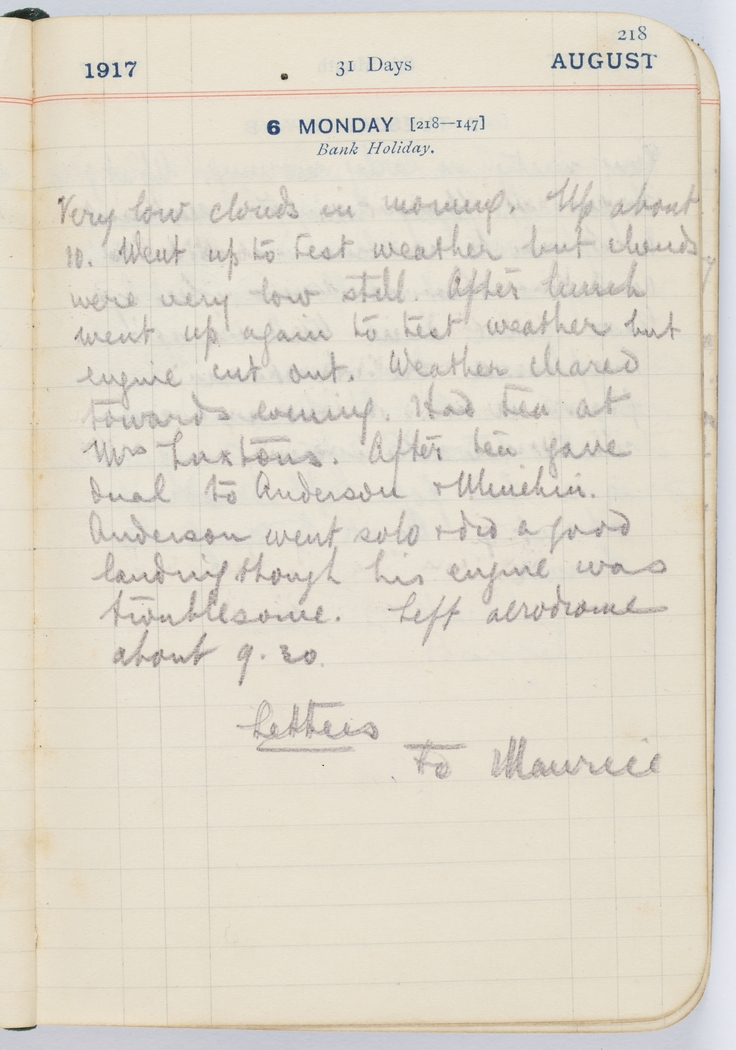 218
1917 31 Days AUGUST
6 MONDAY [218—147]
Bank Holiday.
Very low clouds in morning. Up about
10. Went up to test weather but clouds
were very low still. After lunch
went up again to test weather but
engine cut out. Weather cleared
towards evening. Had tea at
Mrs Luxtons. After tea gave
dual to Anderson + Minchin.
Anderson went solo + did a good
landing though his engine was
troublesome. Left aerodrome
about 9.30.
Letters
To Maurice